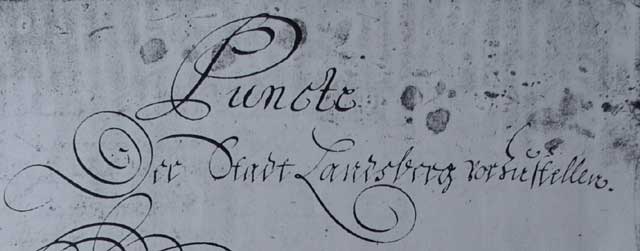 Puncte
Der Stadt Landsberg vorzustellen.